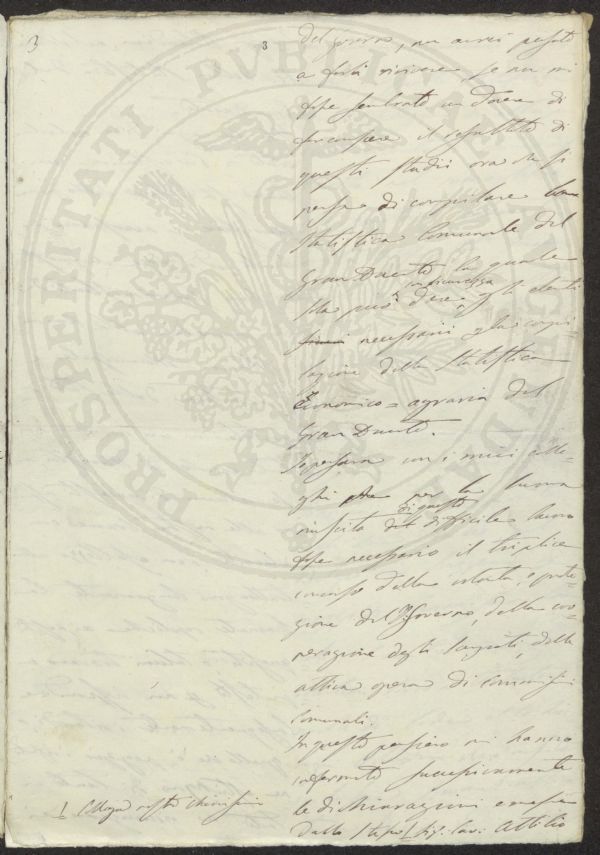 3
3
del governo, non avrei pensato
a farli rivivere, se non mi
fosse sembrato un dovere di
far conoscere il resultato di
questi studii ora che si
pensa di compilare una
Statistica Comunale del
Gran Ducato la quale
in sicurezza
sola può dare gli elementi
necessarii p la compi
lazione della Statistica
Economico = agraria del
Gran Ducato.
Io pensava con i miei colle=
ghi che per la buona
di questo
riuscita del difficile lavoro
fosse necessario il triplice
concorso della volontà, e prote=
zione del Governo, della coo=
perazione degli Impiegati, della
attiva opera di Commissioni
Comunali.
In questo pensiero mi hanno
confermato successivamente
le dichiarazioni emesse
dallo Sig. Cav. Attilio
Collega nostro
PROSPERITATI PVBLICAE AVGENDAE